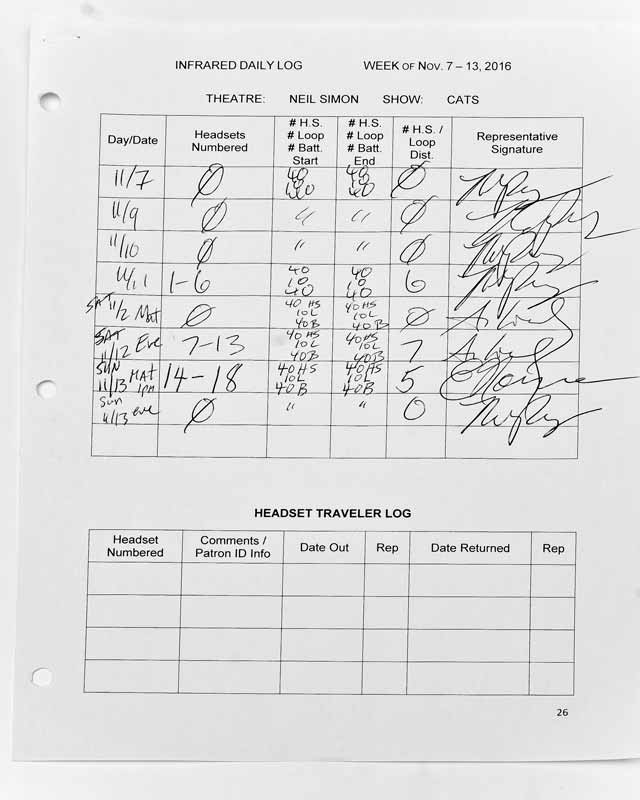 INFRARED DAILY LOG WEEK OF NOV. 7 – 13, 2016
THEATRE: NEIL SIMON SHOW: CATS
Day/Date
Headsets
Numbered
# H.S.
# Loop
# Batt.
Start
# H.S.
# Loop
# Batt.
End
# H.S. /
Loop
Dist.
Representative
Signature
11/7 Ø 40 10 40 40 10 40 Ø
11/9 Ø " " Ø
11/10 Ø " " Ø
11/11 1-6 40 10 40 40 10 40 6
SAT 11/2 Mat Ø 40 HS 10L 40B 40HS 10L 40B Ø
SAT 11/12 Eve 7-13 40HS 10L 40B 40HS 10L 40B 7
SUN 11/13 MAT 1PM 14-18 40HS 10L 40B 40HS 10L 40B 5
Sun 11/13 eve Ø " " 0
HEADSET TRAVELER LOG
Headset
Numbered
Comments /
Patron ID Info
Date Out
Rep
Date Returned
Rep
26